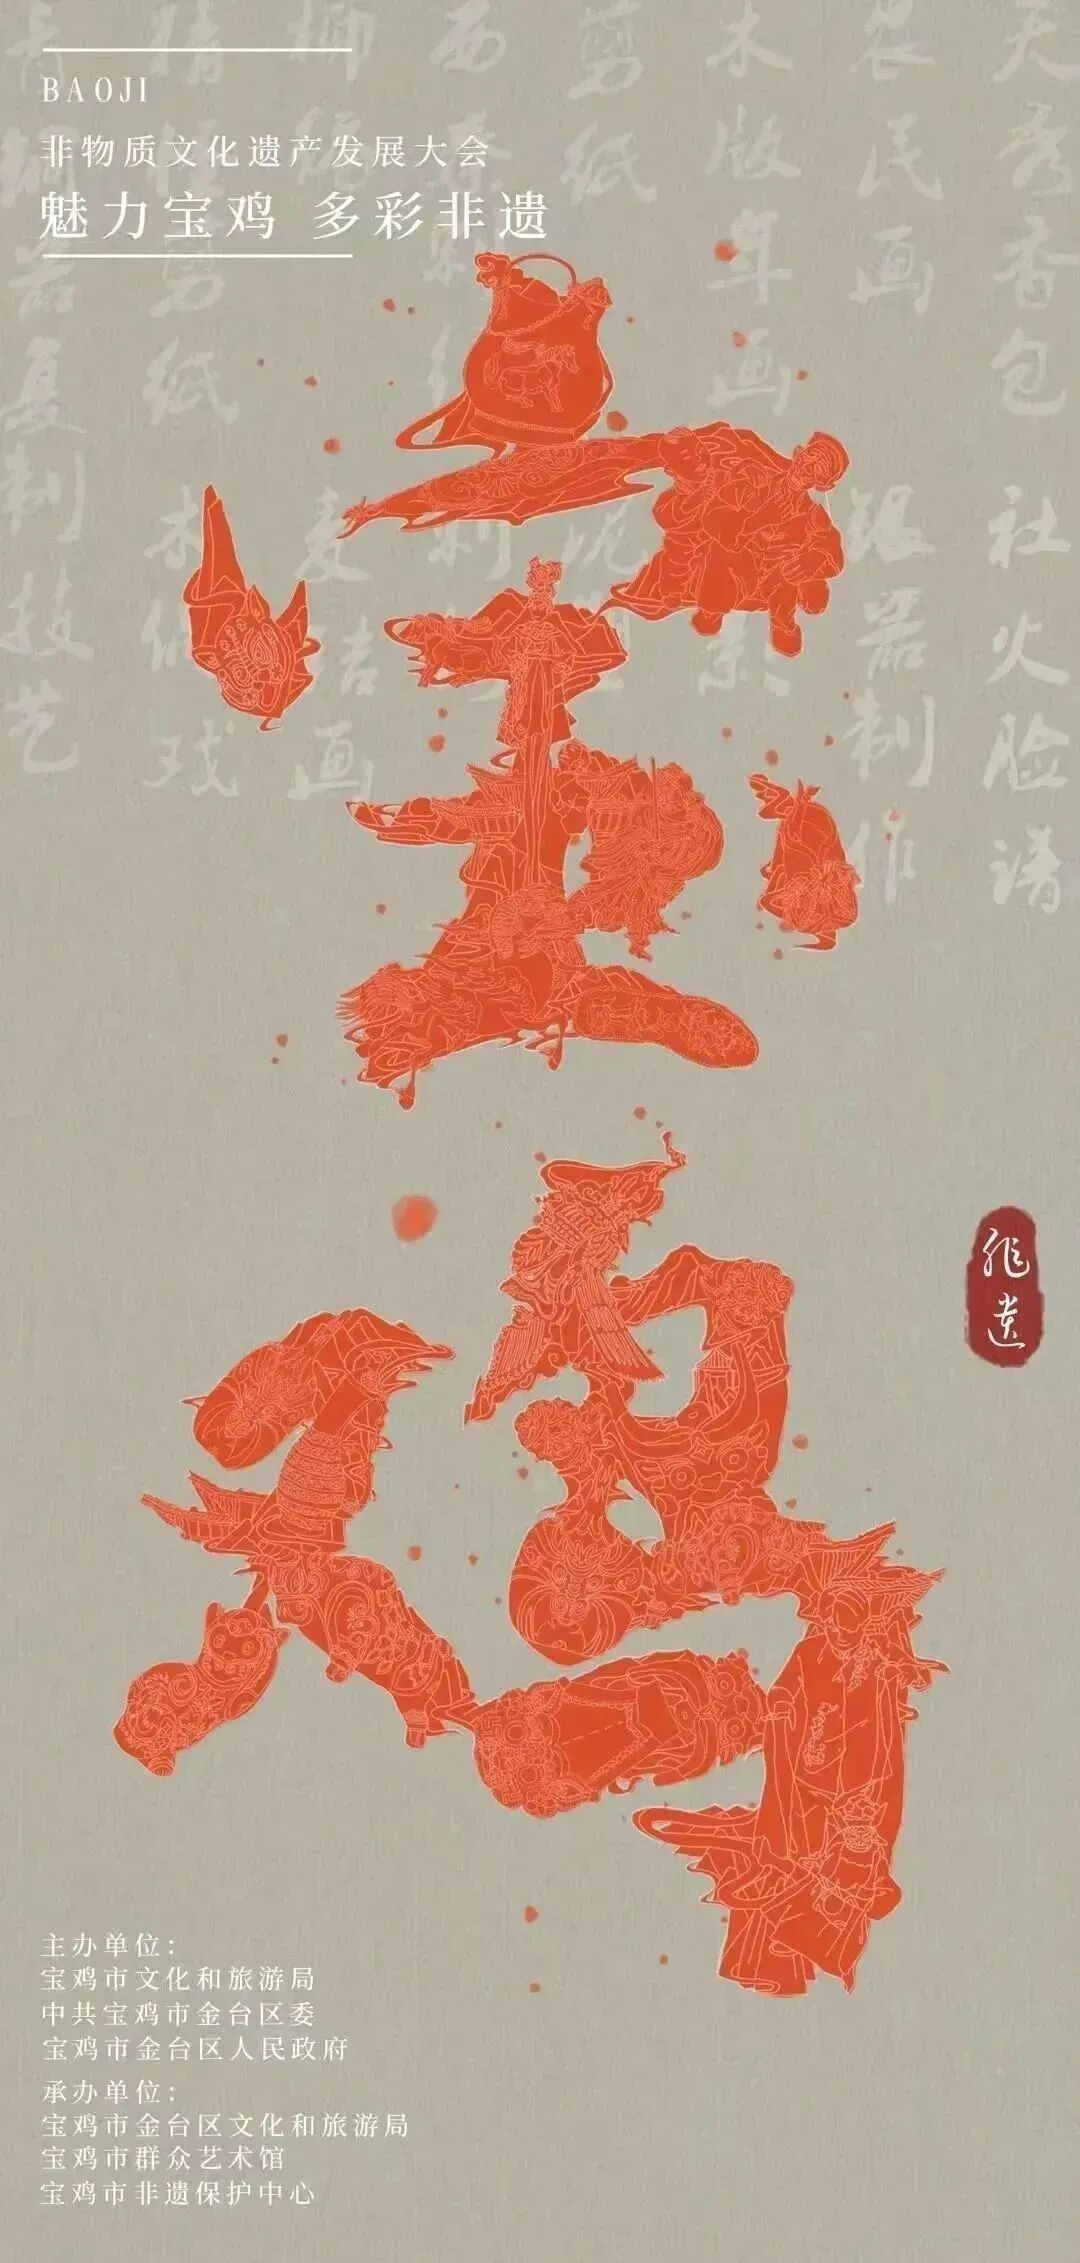 BAOJI
非物质文化遗产发展大会
魅力宝鸡 多彩非遗
宝鸡
非遗
天香包
社火脸谱
民画
银器制作
木版年画
剪纸
麦秸画
剪纸
木偶戏
复制技艺
主办单位：
宝鸡市文化和旅游局
中共宝鸡市金台区委
宝鸡市金台区人民政府
承办单位：
宝鸡市金台区文化和旅游局
宝鸡市群众艺术馆
宝鸡市非遗保护中心